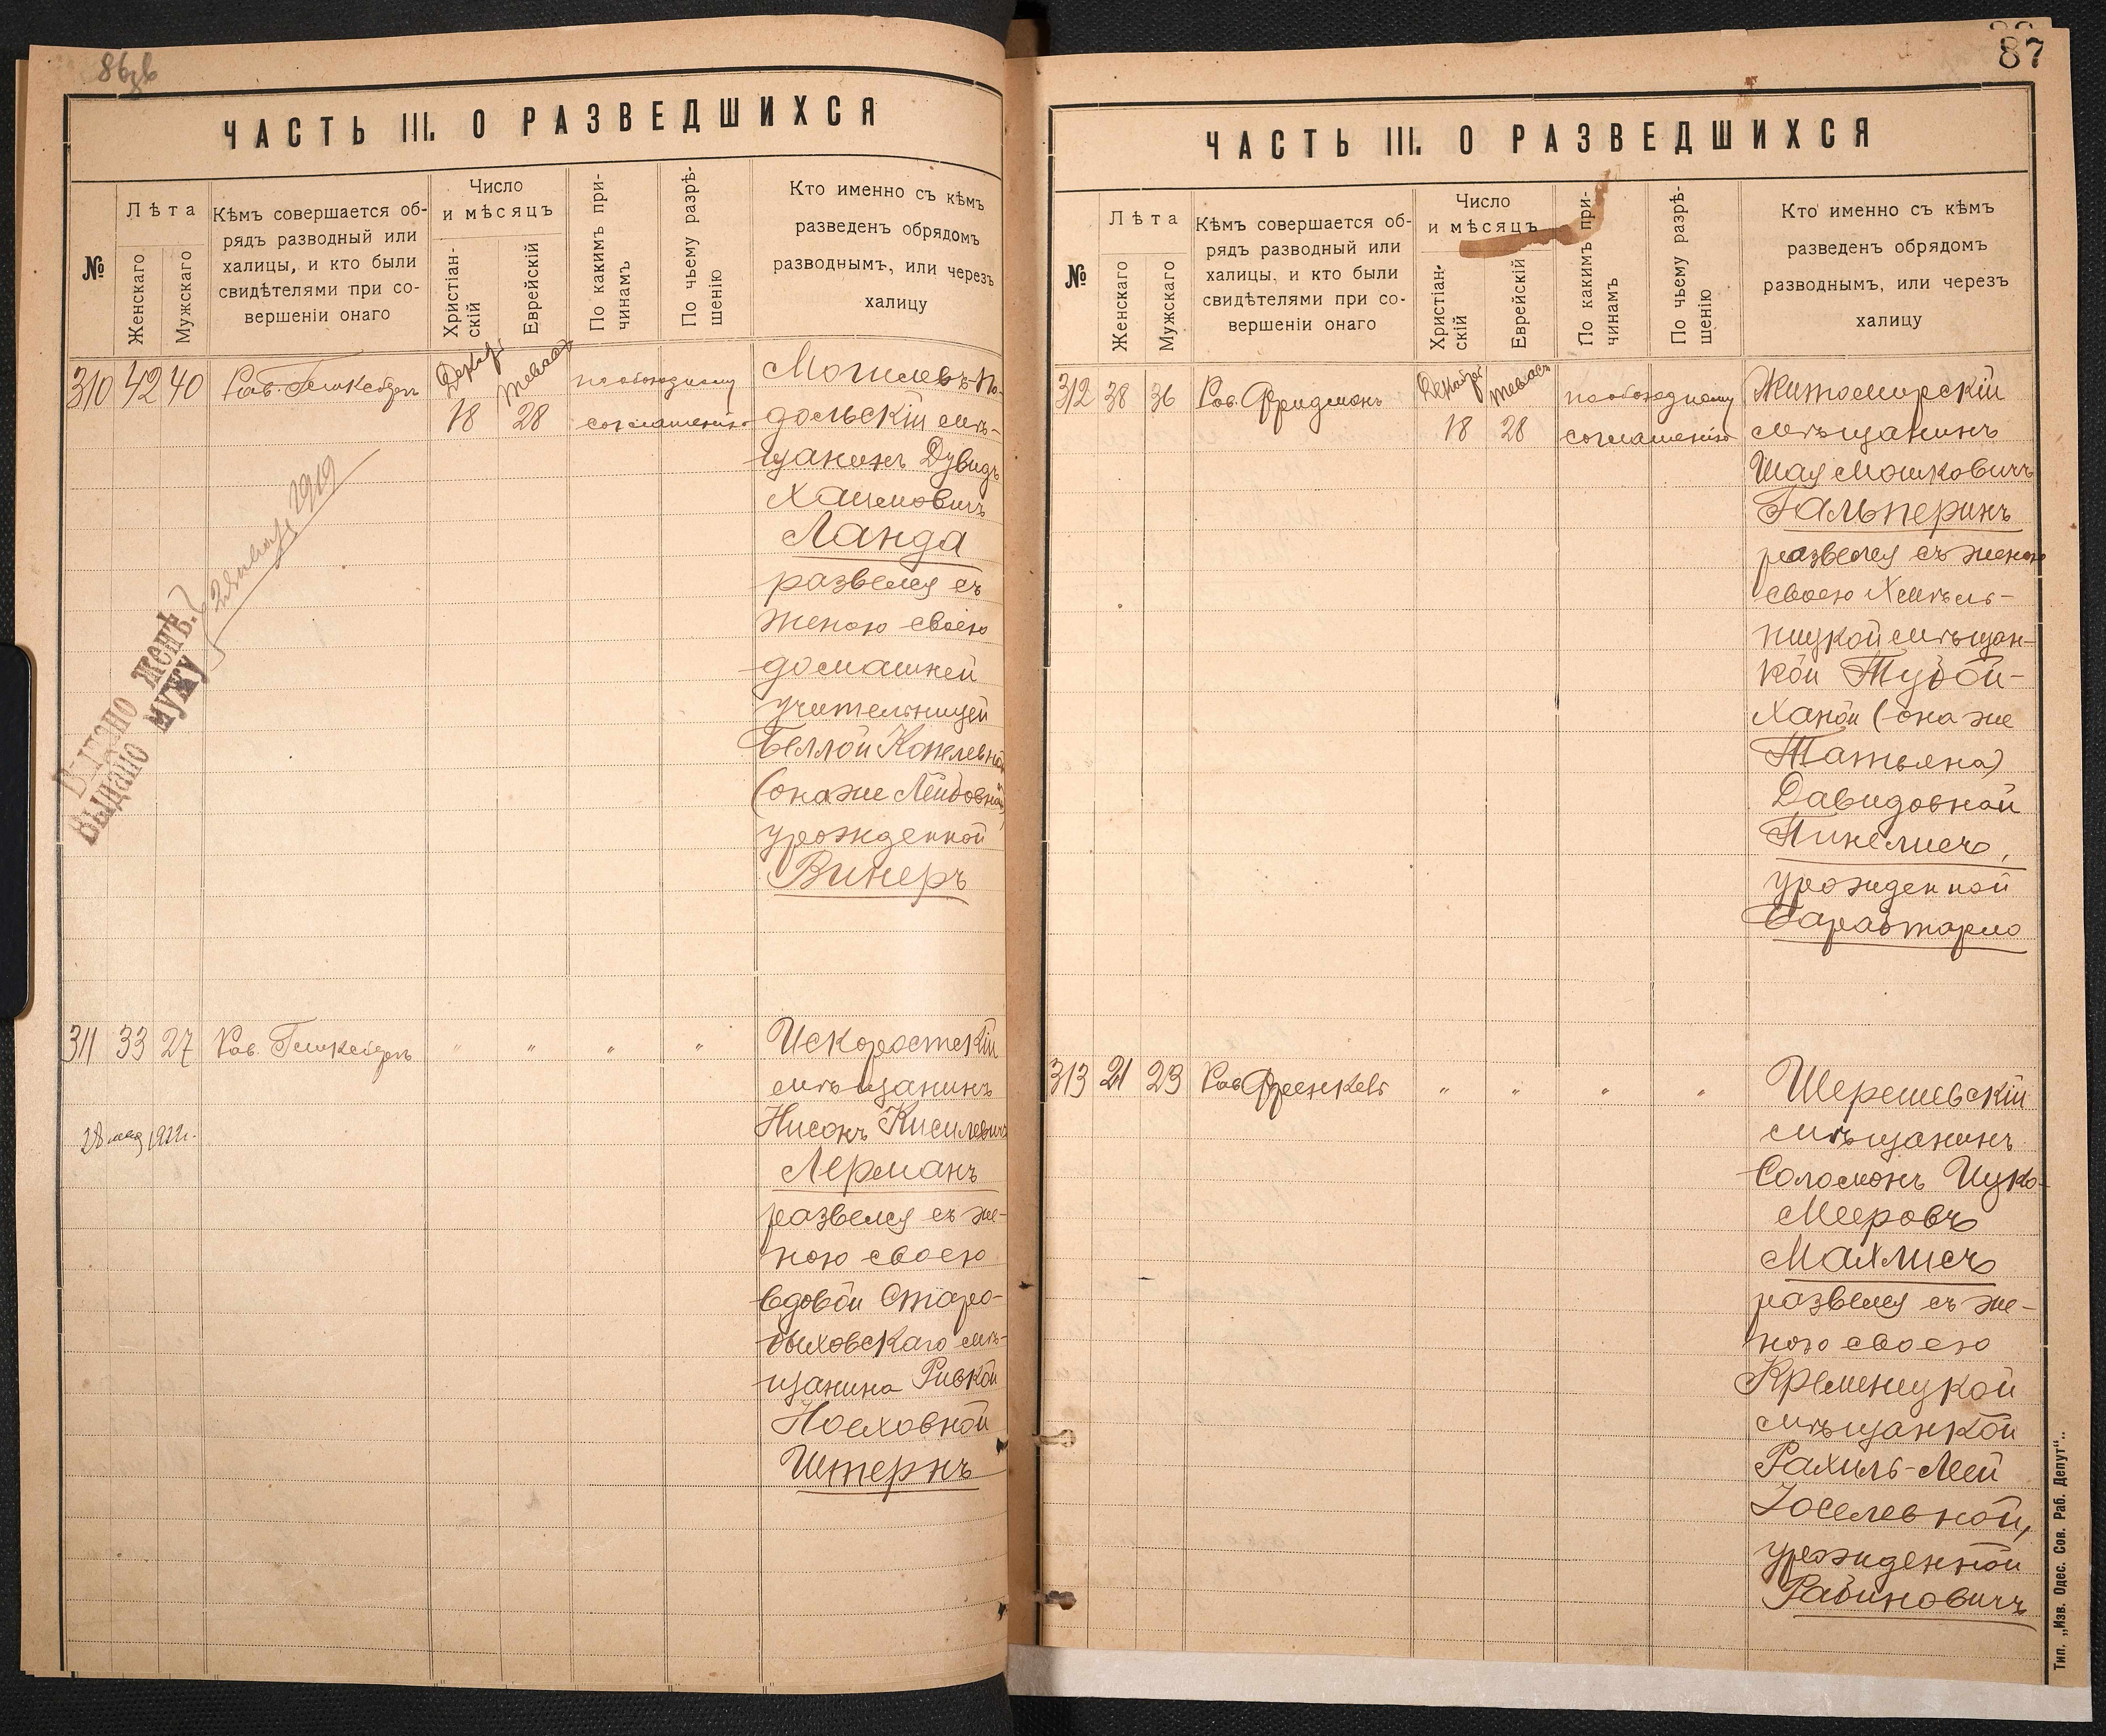 86зв
ЧАСТЬ III. О РАЗВЕДШИХСЯ
№
Лѣта
Женскаго
Мужскаго
Кѣмъ совершается об-
рядъ разводный или
халицы, и кто были
свидѣтелями при со-
вершеніи онаго
Число
и мѣсяцъ
Христіан-
скій
Еврейскій
По какимъ при-
чинамъ
По чьему разрѣ-
шенію
Кто именно съ кѣмъ
разведенъ обрядомъ
разводнымъ, или черезъ
халицу
310 42 40 Рав.
Декабр 18
тевас 28
по обоюдному
соглашенію
Могилевъ-По-
дольскій мѣ-
щанинъ Дувидъ
Хаимовичъ
Ланда
развелся съ
женою своею
домашней
учительницей
Беллой Копелевной
(она же Лейбовной)
урожденной
Винеръ
Выдано женѣ.
Выдано мужу
28 января 1919
311 33 27 Рав. " " " "
28 мая 1922 г.
Искоростскій
мѣщанинъ
Нисонъ Кисилевичъ
Лерманъ
развелся съ же-
ною своею
вдовой Старо-
быховскаго мѣ-
щанина Ривкой
Носховной
Штернъ
87
ЧАСТЬ III. О РАЗВЕДШИХСЯ
№
Лѣта
Женскаго
Мужскаго
Кѣмъ совершается об-
рядъ разводный или
халицы, и кто были
свидѣтелями при со-
вершеніи онаго
Число
и мѣсяцъ
Христіан-
скій
Еврейскій
По какимъ при-
чинамъ
По чьему разрѣ-
шенію
Кто именно съ кѣмъ
разведенъ обрядомъ
разводнымъ, или черезъ
халицу
312 38 36 Рав. Фридманъ
Декабря 18
тевасъ 28
по обоюдному
соглашенію
Житомирскій
мѣщанинъ
Шая Мошковичъ
Гальперинъ
развелся съ женою
своею Хмѣль-
ницкой мѣщан-
кой Тубой-
Ханой (она же
Татьяна)
Давидовной
Пинелисъ,
урожденной
313 21 29 Рав. Френкель " " " "
Шерешевскій
мѣщанинъ
Соломонъ Ицко-
Мееровъ
Махлисъ
развелся съ же-
ною своею
Кременецкой
мѣщанкой
Рахиль-Леей
Іоселевной,
урожденной
Рабиновичъ
Тип. „Изв. Одес. Сов. Раб. Депут“..